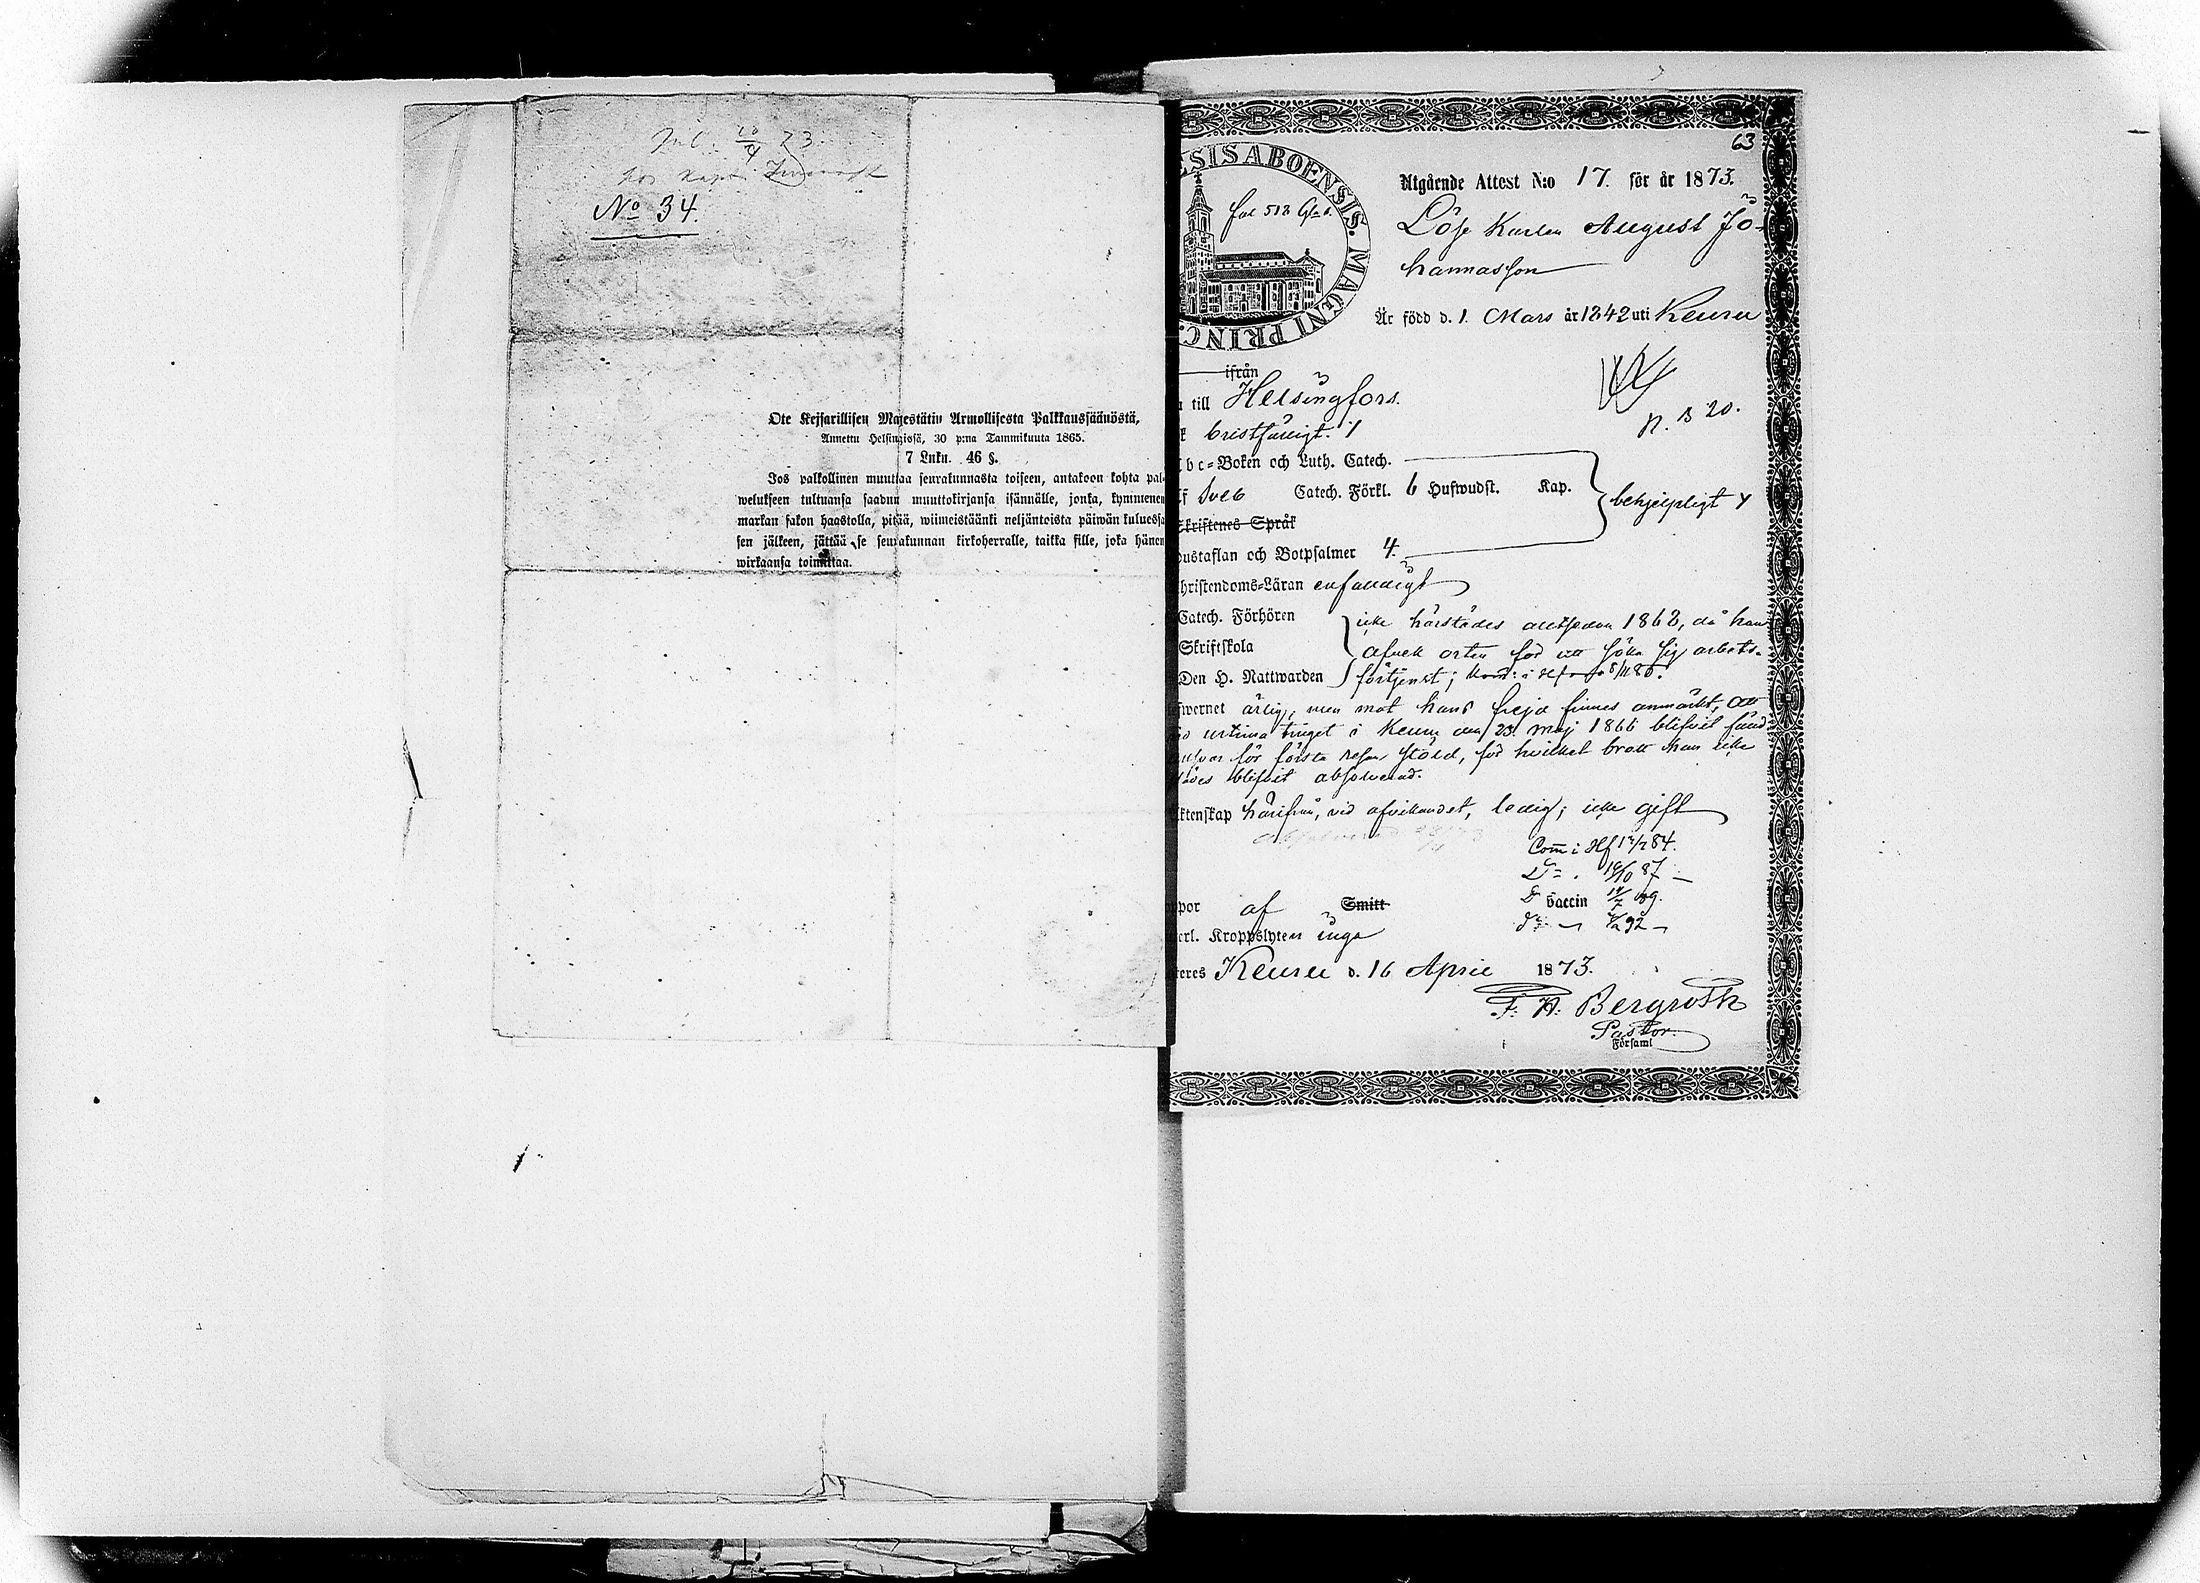 No 34.
Ote Kejsarillisen Majestätin Armollisesta Palkkaussäänöstä,
Annettu Helsingissä, 30 p:nä Tammikuuta 1865.
7 Luku. 46 §.
Jos palkollinen muuttaa seurakunnasta toiseen, antakoon kohta pal-
welukseen tultuansa saadun muuttokirjansa isännälle, jonka, kymmenen
markan sakon haastolla, pitää, wiimeistäänki neljäntoista päiwän kuluessa
sen jälkeen, jättää se seurakunnan kirkoherralle, taikka sille, joka hänen
wirkaansa toimittaa.
63
SIS ABOENSIS. MAGNI PRINC.
fol 513
Utgående Attest N:o 17. för år 1873.
Löse Karlen August Jo-
hannasson
Är född d. 1. Mars år 1842 uti Keuru
ifrån
till Helsingfors.
N. B 20.
bristfälligt.
bc-Boken och Luth. Catech.
Sveb Catech. Förkl. 6 Hufwudst. Kap.
behjelpligt
Skriftenes Språk
ustaflan och Botpsalmer 4.
hristendoms-Läran enfaldigt
Catech. Förhören icke härstädes alltsedan 1868, då han
Skriftskola afvek orten för att söka sig arbets-
Den H. Nattwarden förtjenst;
wernet ärlig, men mot hans frejd finnes anmärkt, att
urtima tinget i Keuru den 23 maj 1866 blifvit
för första resan stöld, för hvilket brott han icke
blifvit absolverad.
ktenskap härifrån, vid afvikandet, ledig; icke gift
Com i Hfs 84.
87
por af Smitt
Vaccin
erl. Kroppslyten inga
92
eres Keuru d. 16 April 1873.
F. H. Bergroth
Pastor.
Församl